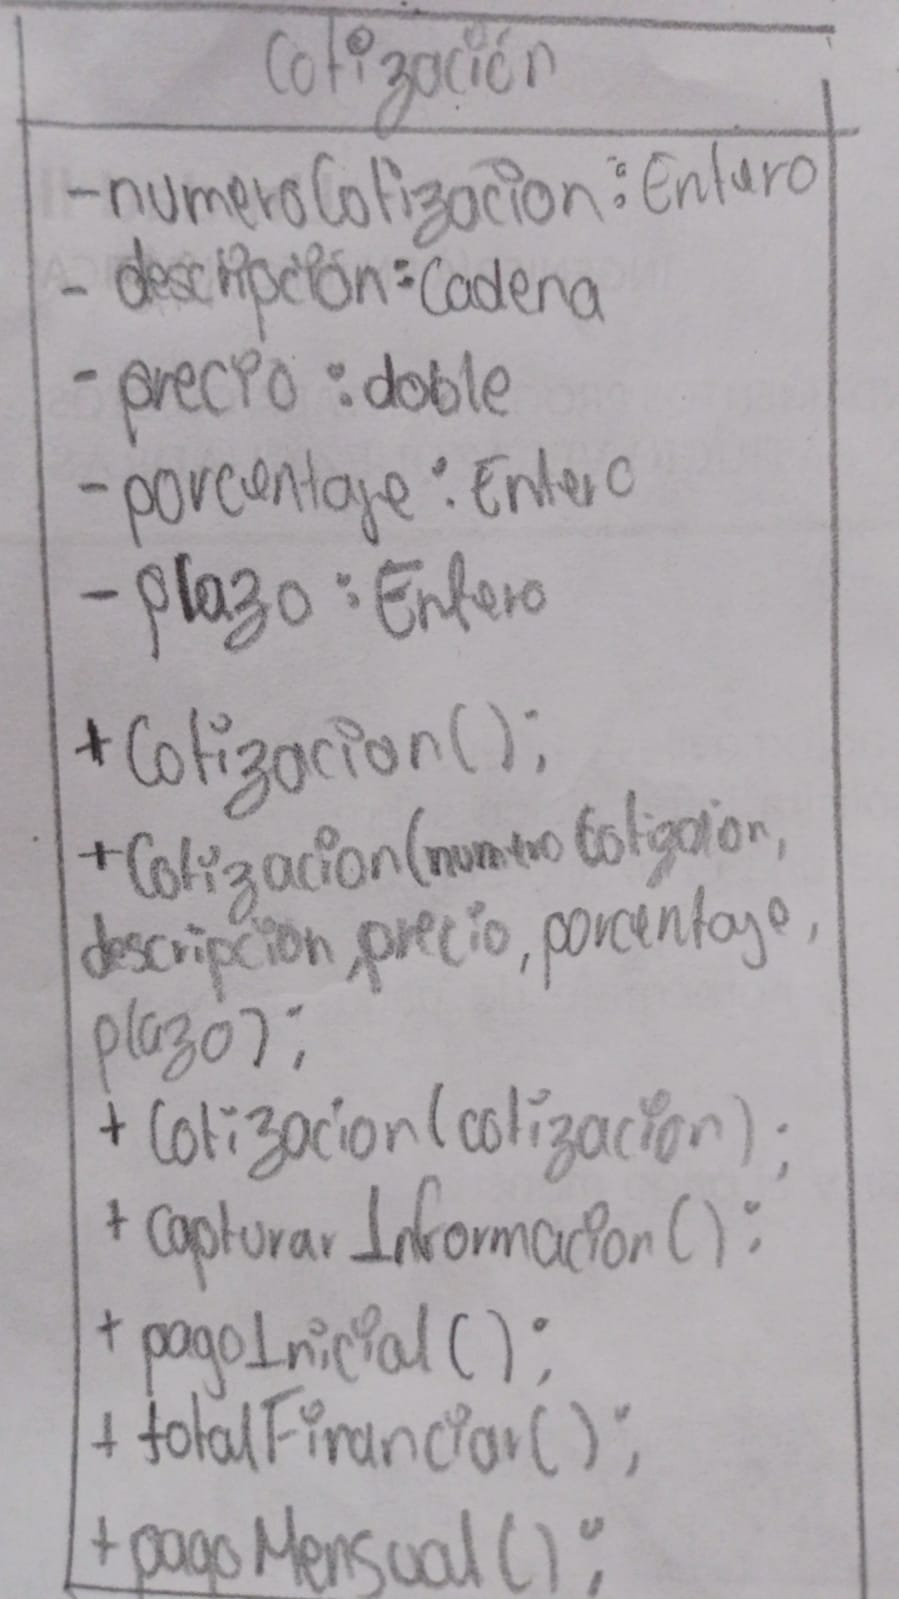 Cotización
- numeroCotizacion : Entero
- descripción : Cadena
- precio : doble
- porcentaje : Entero
- plazo : Entero
+ Cotizacion();
+ Cotizacion(numero Cotizacion,
descripcion, precio, porcentaje,
plazo);
+ Cotizacion(cotización);
+ capturarInformacion();
+ pagoInicial();
+ totalFinanciar();
+ pagoMensual();